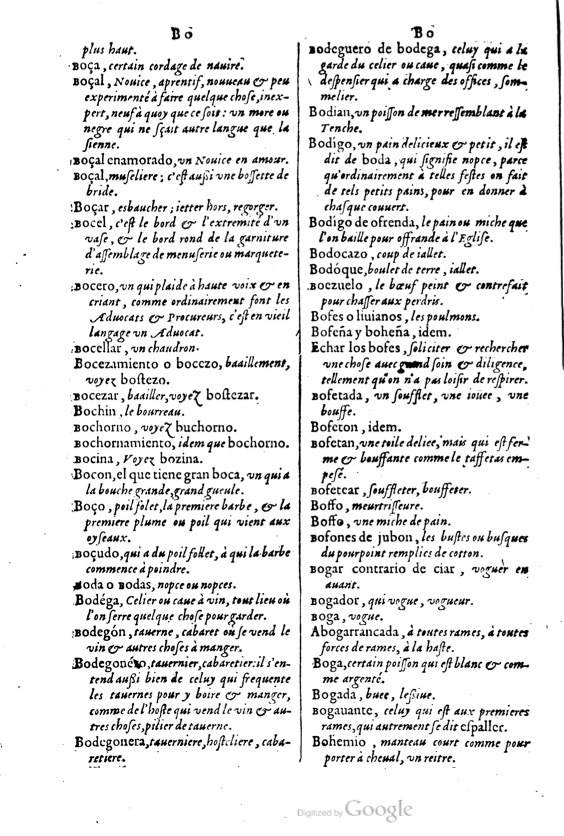 Bo
plus haut.
Boça, certain cordage de nauire.
Boçal, Nouice, aprentif, nouueau & peu
experimenté à faire quelque chose, inex-
pert, neuf à quoy que ce soit: vn more ou
negre qui ne sçait autre langue que la
sienne.
Boçal enamorado, vn Nouice en amour.
Boçal, museliere; c'est aussi vne bossette de
bride.
Boçar, esbaucher; ietter hors, regorger.
Bocel, c'est le bord & l'extremité d'vn
vase, & le bord rond de la garniture
d'assemblage de menuserie ou marquete-
rie.
Bocero, vn qui plaide à haute voix & en
criant, comme ordinairement font les
Aduocats & Procureurs, c'est en vieil
langage vn Aduocat.
Bocellar, un chaudron.
Bocezamiento o bocezo, baaillement,
voyez bostezo.
Bocezar, baailler, voyez bostezar.
Bochin, le bourreau.
Bochorno, voyez buchorno.
Bochornamiento, idem que bochorno.
Bocina, Voyez bozina.
Bocon, el que tiene gran boca, vn qui a
la bouche grande, grand gueule.
Boço, poil folet, la premiere barbe, & la
premiere plume ou poil qui vient aux
oyseaux.
Boçudo, qui a du poil follet, à qui la barbe
commence à poindre.
Boda o Bodas, nopce ou nopces.
Bodéga, Celier ou caue à vin, tout lieu où
l'on serre quelque chose pour garder.
Bodegón, tauerne, cabaret où se vend le
vin & autres choses à manger.
Bodegonéro, tauernier, cabaretier: il s'en-
tend aussi bien de celuy qui frequente
les tauernes pour y boire & manger,
comme de l'hoste qui vend le vin & au-
tres choses, pilier de tauerne.
Bodegonera, tauerniere, hosteliere, caba-
retiere.
Bo
Bodeguero de bodega, celuy qui a la
garde du celier ou caue, quasi comme le
despensier qui a charge des offices, som-
melier.
Bodian, vn poisson de mer ressemblant à la
Tenche.
Bodigo, vn pain delicieux & petit, il est
dit de boda, qui signifie nopce, parce
qu'ordinairement à telles festes on fait
de tels petits pains, pour en donner à
chasque couuert.
Bodigo de ofrenda, le pain ou miche que
l'on baille pour offrande à l'Eglise.
Bodocazo, coup de iallet.
Bodóque, boulet de terre, iallet.
Boezuelo, le bœuf peint & contrefait
pour chasser aux perdris.
Bofes o liuianos, les poulmons.
Bofeña y boheña, idem.
Echar los bofes, soliciter & rechercher
vne chose auec grand soin & diligence,
tellement qu'on n'a pas loisir de respirer.
Bofetada, vn soufflet, vne iouee, vne
bouffe.
Bofeton, idem.
Bofetan, vne toile deliee, mais qui est fer-
me & bouffante comme le taffetas em-
pesé.
Bofetear, souffleter, bouffeter.
Boffo, meurtrisseure.
Boffo, vne miche de pain.
Bofones de jubon, les bustes ou busques
du pourpoint remplies de cotton.
Bogar contrario de ciar, voguer en
auant.
Bogador, qui vogue, vogueur.
Boga, vogue.
Abogarrancada, à toutes rames, à toutes
forces de rames, à la haste.
Boga, certain poisson qui est blanc & com-
me argenté.
Bogada, buee, lessiue.
Bogauante, celuy qui est aux premieres
rames, qui autrement se dit espaller.
Bohemio, manteau court comme pour
porter à cheual, vn reitre.
Digitized by Google